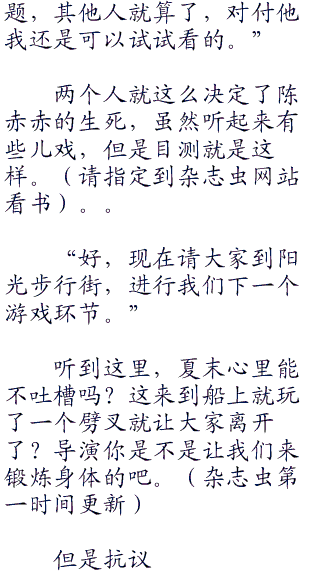 题，其他人就算了，对付他
我还是可以试试看的。”
两个人就这么决定了陈
赤赤的生死，虽然听起来有
些儿戏，但是目测就是这
样。（请指定到杂志虫网站
看书）。。
“好，现在请大家到阳
光步行街，进行我们下一个
游戏环节。”
听到这里，夏末心里能
不吐槽吗？这来到船上就玩
了一个劈叉就让大家离开
了？导演你是不是让我们来
锻炼身体的吧。（杂志虫第
一时间更新）
但是抗议